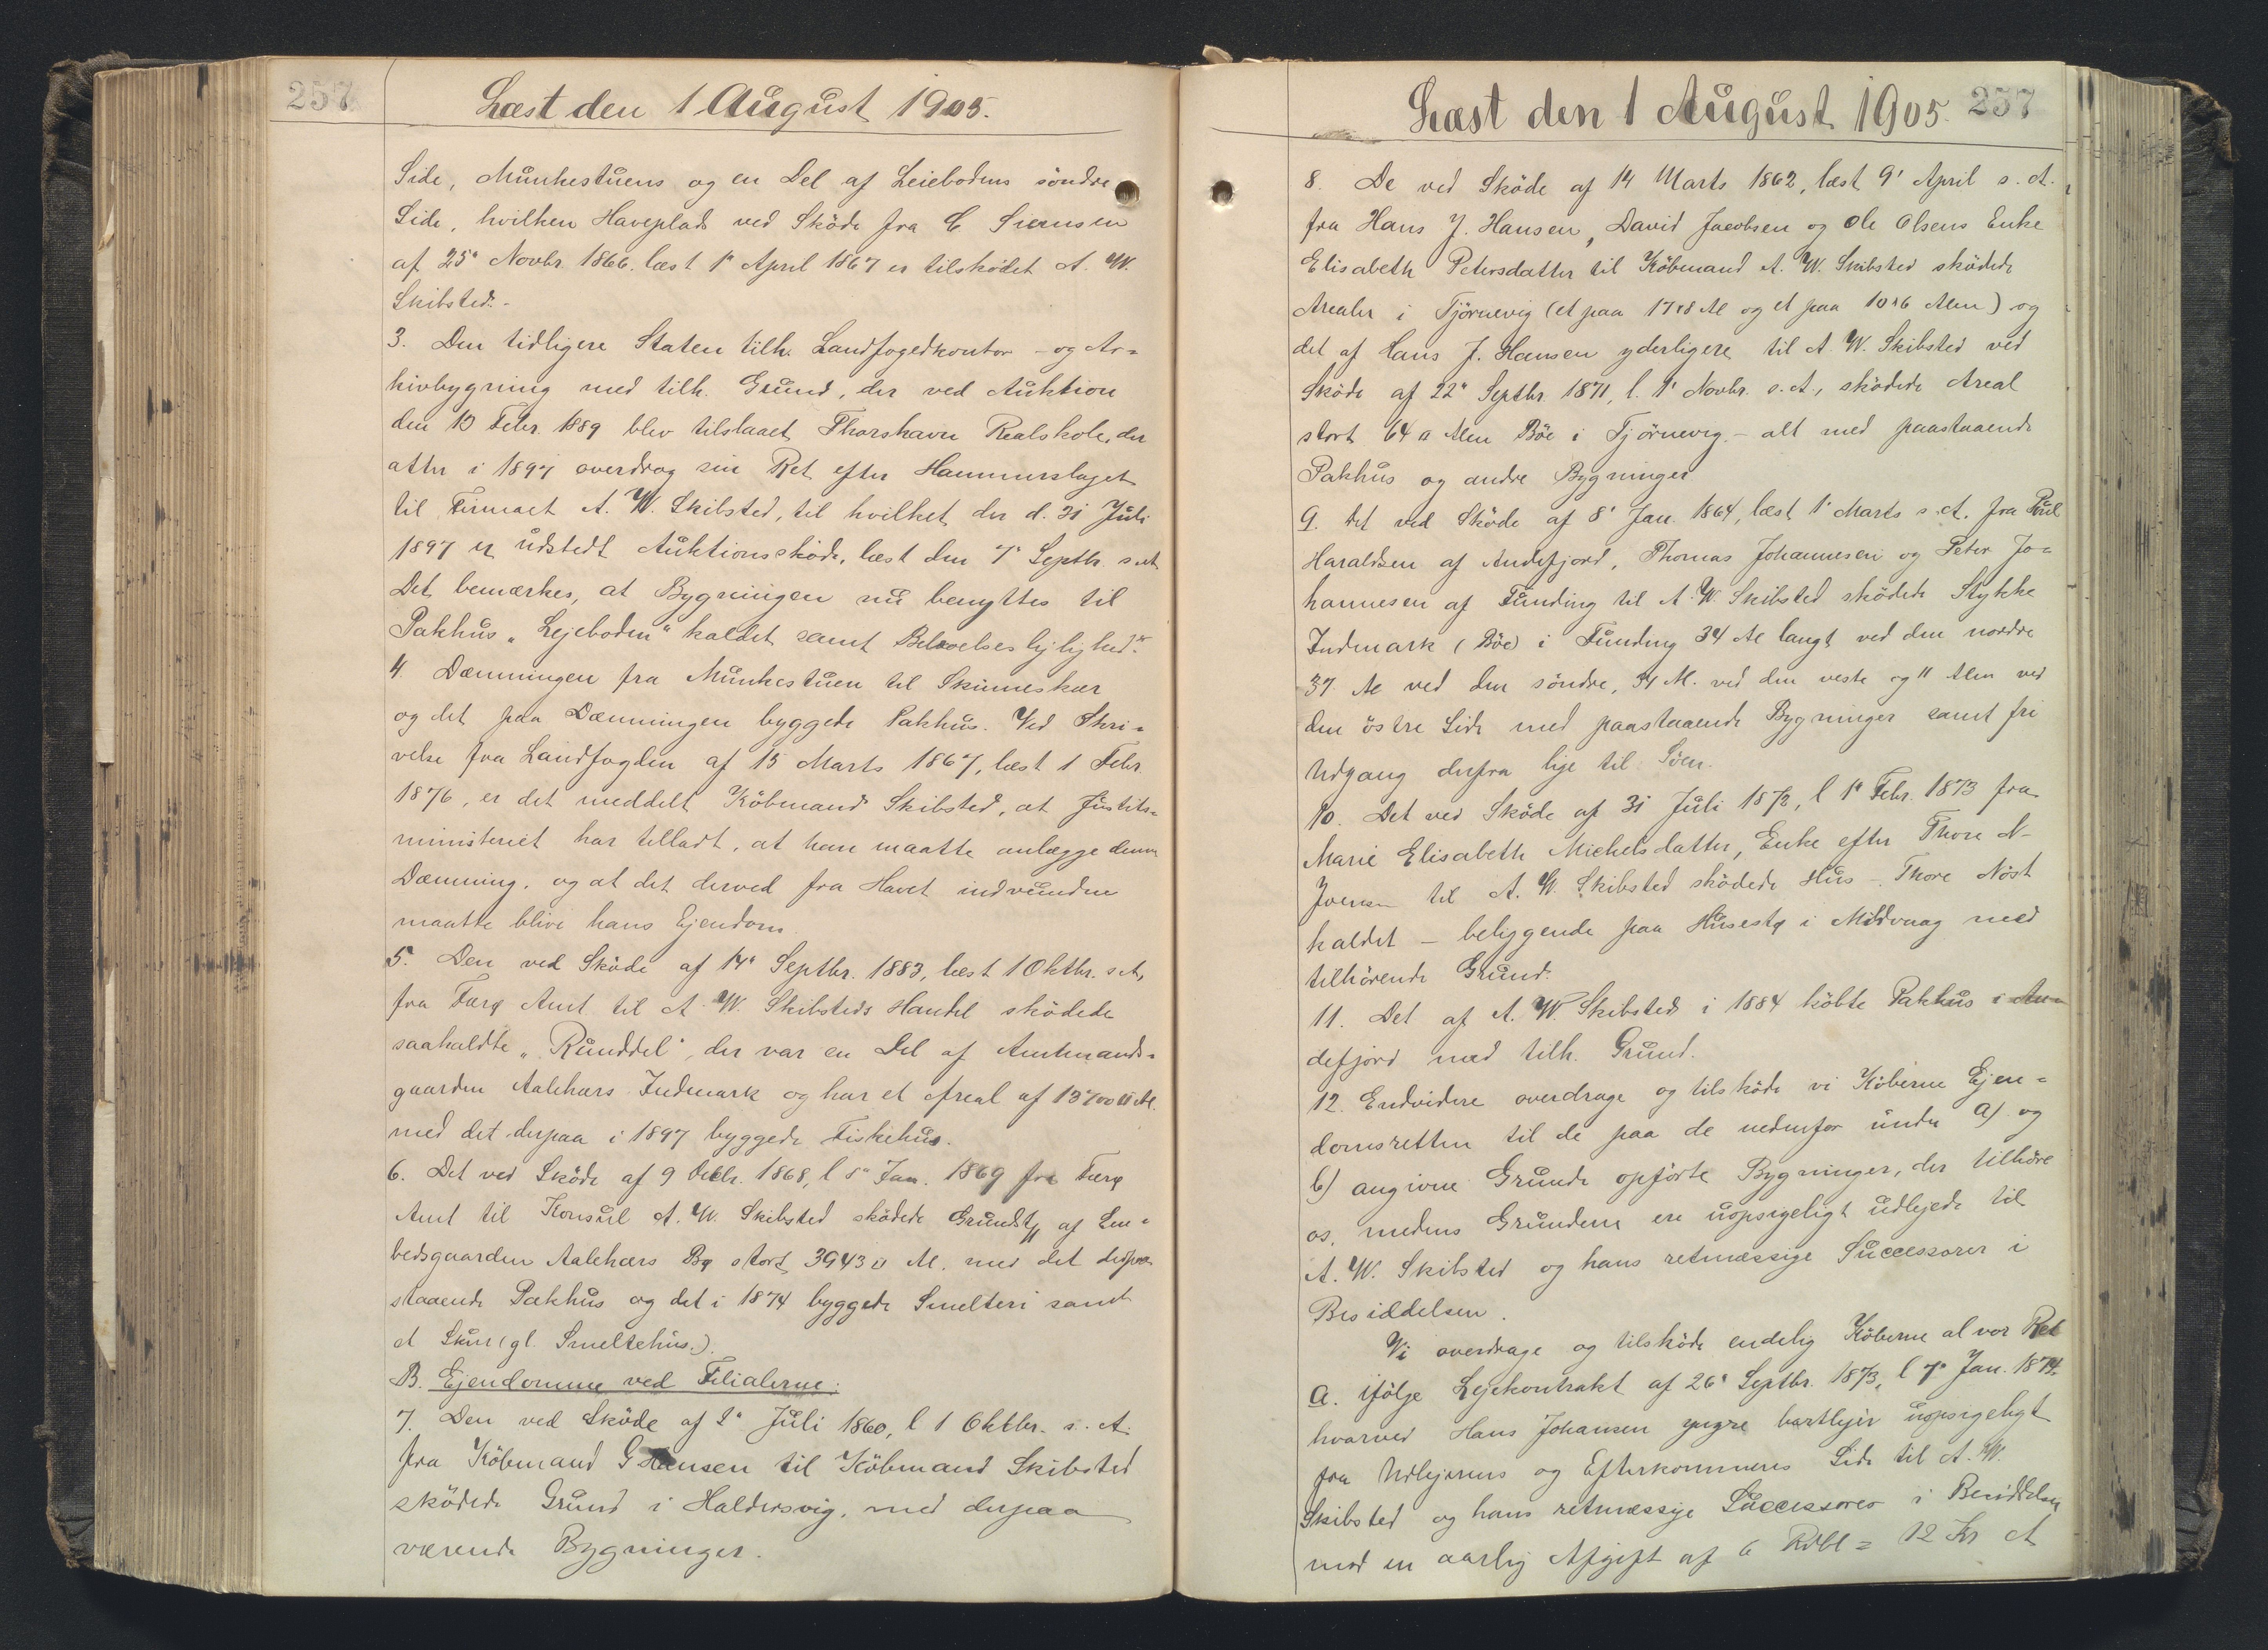 257
Læst den 1 August 1905.
Side, Munkestuens og en Del af Leiebodens söndre
Side, hvilken Haveplads ved Sköde fra C Siemsen
af 25' Novbr. 1866. læst 1' April 1867 er tilsködet A. W.
Skibsted.-
3. Den tidligere Staten tilh. Landfogedkontor - og Ar=
kivbygning med tilh. Grund, der ved Auktion
den Febr. 1889 blev tilslaaet Thorshavn Realskole, der
atter i 1897 overdrog sin Ret efter Hammerslaget
til Firmaet A. W. Skibsted, til hvilket der d. 31 Juli
1897 er udstedt Auktionssköde, læst den 7' Septbr. s. A.
Det bemærkes, at Bygningen nu benyttes til
Pakhus „Lejeboden" kaldet samt
4. Dæmningen fra Munkestuen til Skinneskær
og det paa Dæmningen byggede Pakhus. Ved Skri=
velse fra Landfogden af 15 Marts 1867, læst 1 Febr.
1876, er det meddelt Köbmand Skibsted, at Justits=
ministeriet har tilladt, at han maatte anlægge denne
Dæmning, og at det derved fra Havet indvundne
maatte blive hans Ejendom.
5. Den ved Sköde af 14' Septbr. 1883, læst 1 Oktbr. s. A,
fra Færø Amt til A. W. Skibsteds Handel sködede
saakaldte „Runddel", der var en Del af Amtmands=
gaarden Aalekærs Indmark og har et Areal af
med det derpaa i 1897 byggede Fiskehus.
6. Det ved Sköde af 9 Decbr. 1868, l 5' Jan. 1869 fra Færø
Amt til Konsul A. W. Skibsted sködede Grundst. af Em=
bedsgaarden Aalekærs Bø stort 3943 □ Al. med det derpaa
staaende Pakhus og det i 1874 byggede Smelteri samt
et Skur (gl. Smeltehus.).
B. Ejendomme ved Filialerne:
7. Den ved Sköde af 2' Juli 1860, l 1 Oktbr. s. A.
fra Köbmand G Hansen til Köbmand Skibsted
sködede Grund i Haldersvig, med derpaa
værende Bygninger.
Læst den 1 August 1905. 257
8. De ved Sköde af 14 Marts 1862, læst 9' April s. A.
fra Hans J. Hansen, David Jacobsen og Ole Olsens Enke
Elisabeth Petersdatter til Köbmand A. W. Skibsted sködede
Arealer i Tjörnevig (et paa Al og et paa Alen) og
det af Hans J. Hansen yderligere til A. W. Skibsted ved
Sköde af 22' Septbr. 1871, l. 1' Novbr. s. A., sködede Areal
stort 64 □ Alen Böe i Tjörnevig. - alt med paastaaende
Pakhus og andre Bygninger
9. Det ved Sköde af 8' Jan. 1864, læst 1' Marts s. A. fra Poul
Haraldsen af Andefjord, Thomas Johannesen og Peter Jo=
hannesen af Funding til A. W. Skibsted sködede Stykke
Indmark (Böe) i Funding 34 Al langt ved den nordre
37 Al ved den söndre, 31 Al. ved den veste og 11 Alen ved
den östre Side med paastaaende Bygninger samt fri
Udgang derfra lige til Söen.
10. Det ved Sköde af 31 Juli 1872, l 1' Febr. 1873 fra
Marie Elisabeth Michelsdatter, Enke efter Thore N-
Joensen til A. W. Skibsted sködede Hus - Thore Nöst
kaldet - beliggende paa i Midvaag med
tilhörende Grund.
11. Det af A. W. Skibsted i 1884 köbte Pakhus i An=
defjord med tilh. Grund.
12. Endvidere overdrage og tilsköde vi Köberne Ejen=
domsretten til de paa de nedenfor under a) og
b) angivne Grunde opförte Bygninger, der tilhöre
os, medens Grundene ere uopsigeligt udlejede til
A. W. Skibsted og hans retmæssige Successorer i
Besiddelsen.
Vi overdrage og tilsköde endelig Köberne al vor Ret
a. ifölge Lejekontrakt af 26' Septbr. 1873, l 7' Jan. 1874,
hvorved Hans Johansen yngre bortlejer uopsigeligt
fra Udlejerens og Efterkommeres Side til A. W.
Skibsted og hans retmæssige Successorer i Besiddelsen
mod en aarlig Afgift af 6 Rdl = 12 Kr et